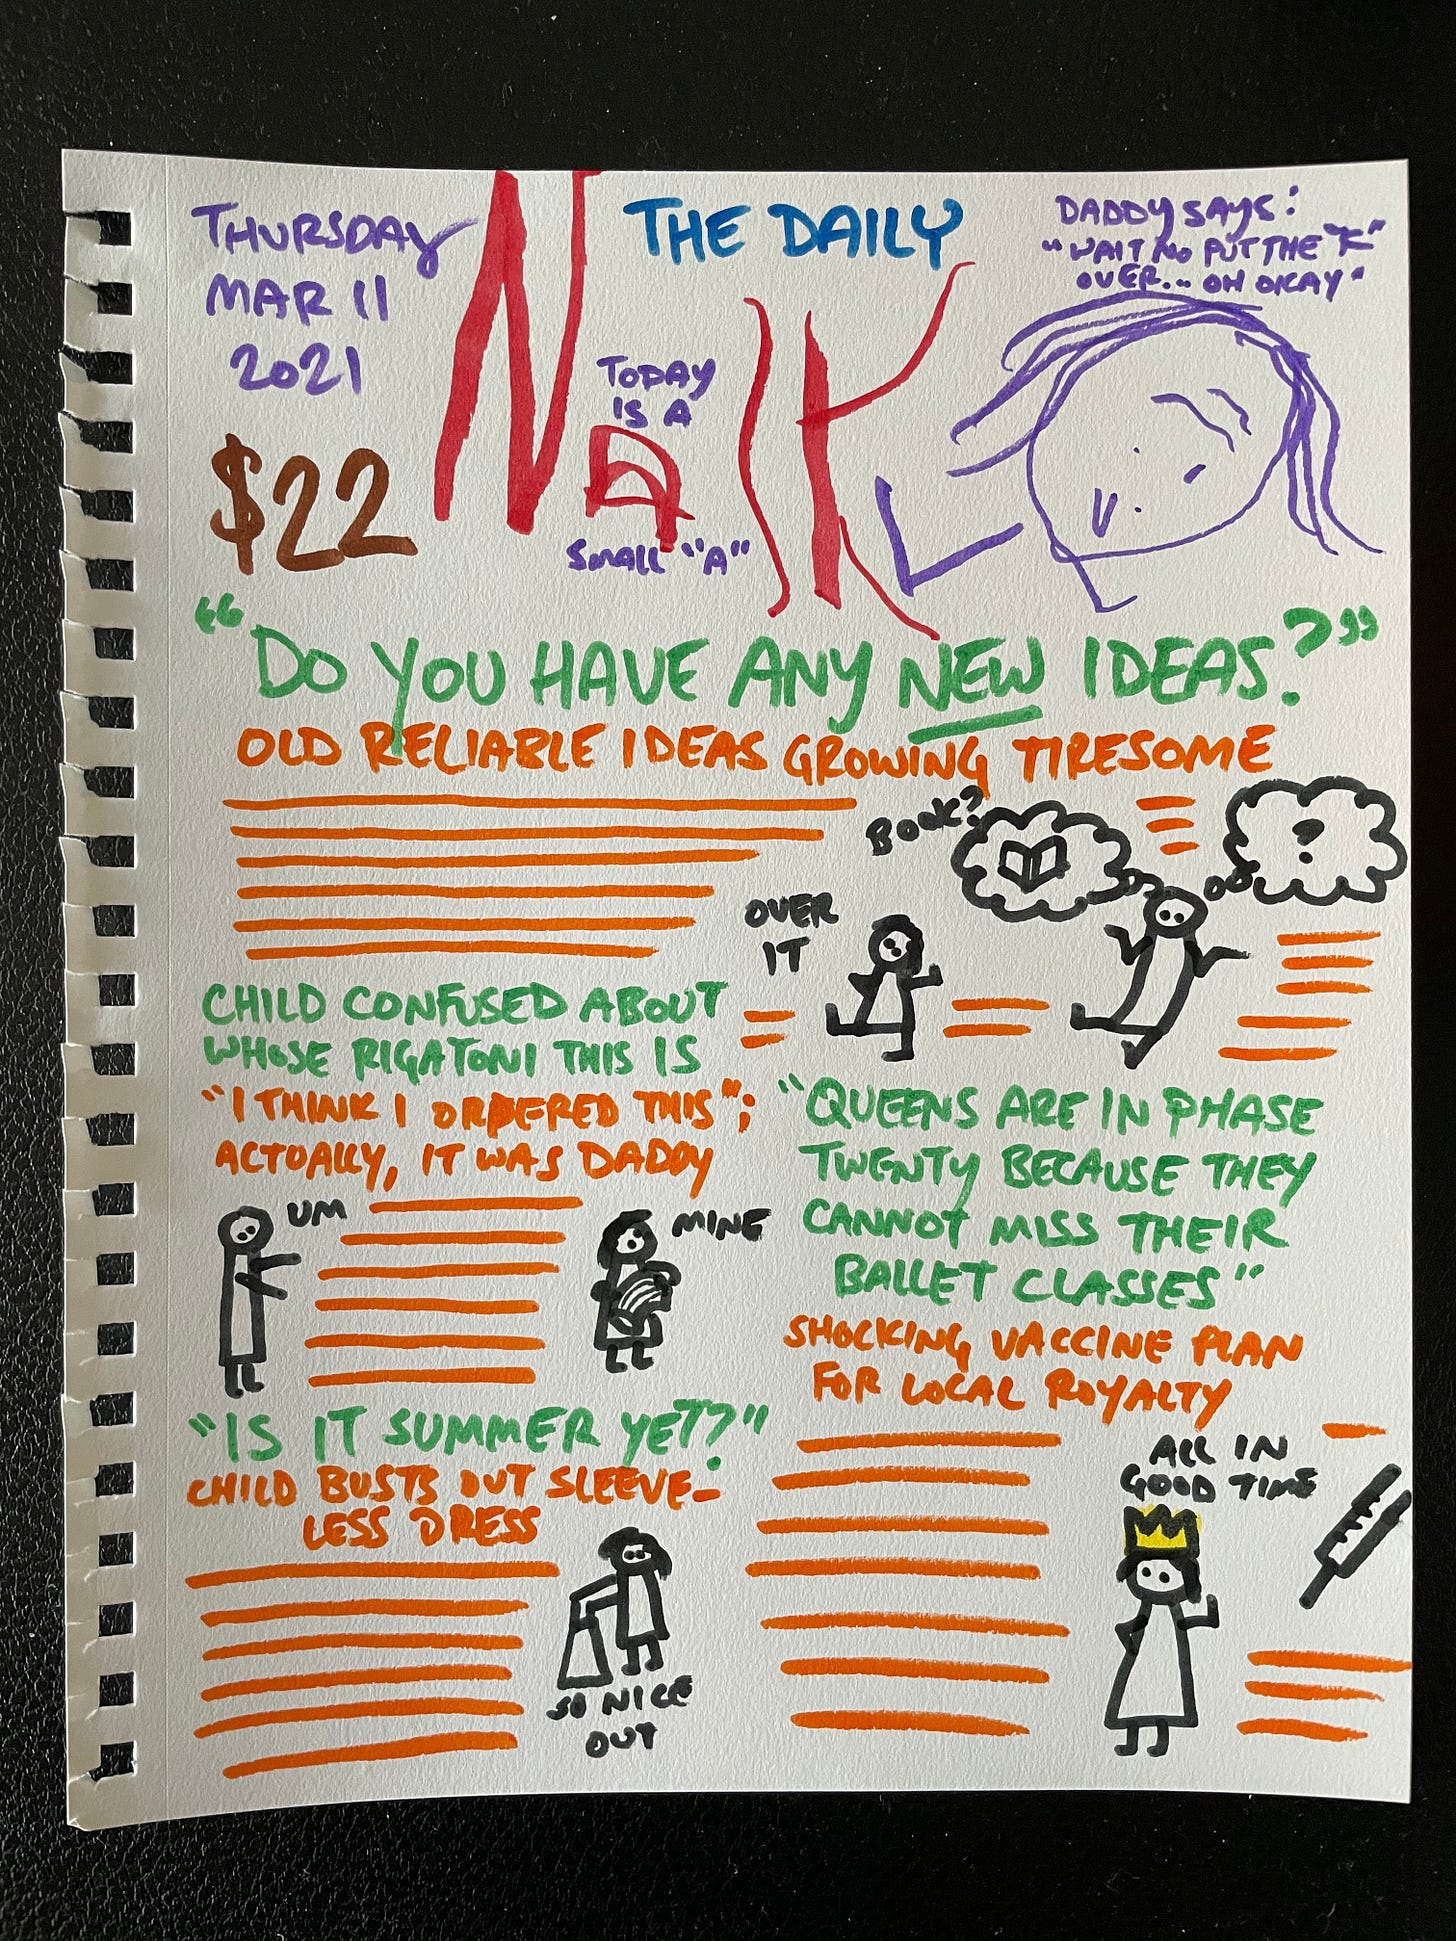 THURSDAY
MAR 11
2021
$22
THE DAILY
NaK
TODAY
IS A
SMALL "A"
DADDY SAYS:
"WAIT NO PUT THE "K"
OVER... OH OKAY"
"DO YOU HAVE ANY NEW IDEAS?"
OLD RELIABLE IDEAS GROWING TIRESOME
BOOK?
?
OVER
IT
CHILD CONFUSED ABOUT
WHOSE RIGATONI THIS IS
"I THINK I ORDERED THIS";
ACTUALLY, IT WAS DADDY
UM
MINE
"QUEENS ARE IN PHASE
TWENTY BECAUSE THEY
CANNOT MISS THEIR
BALLET CLASSES"
SHOCKING VACCINE PLAN
FOR LOCAL ROYALTY
ALL IN
GOOD TIME
"IS IT SUMMER YET?"
CHILD BUSTS OUT SLEEVE-
LESS DRESS
SO NICE
OUT